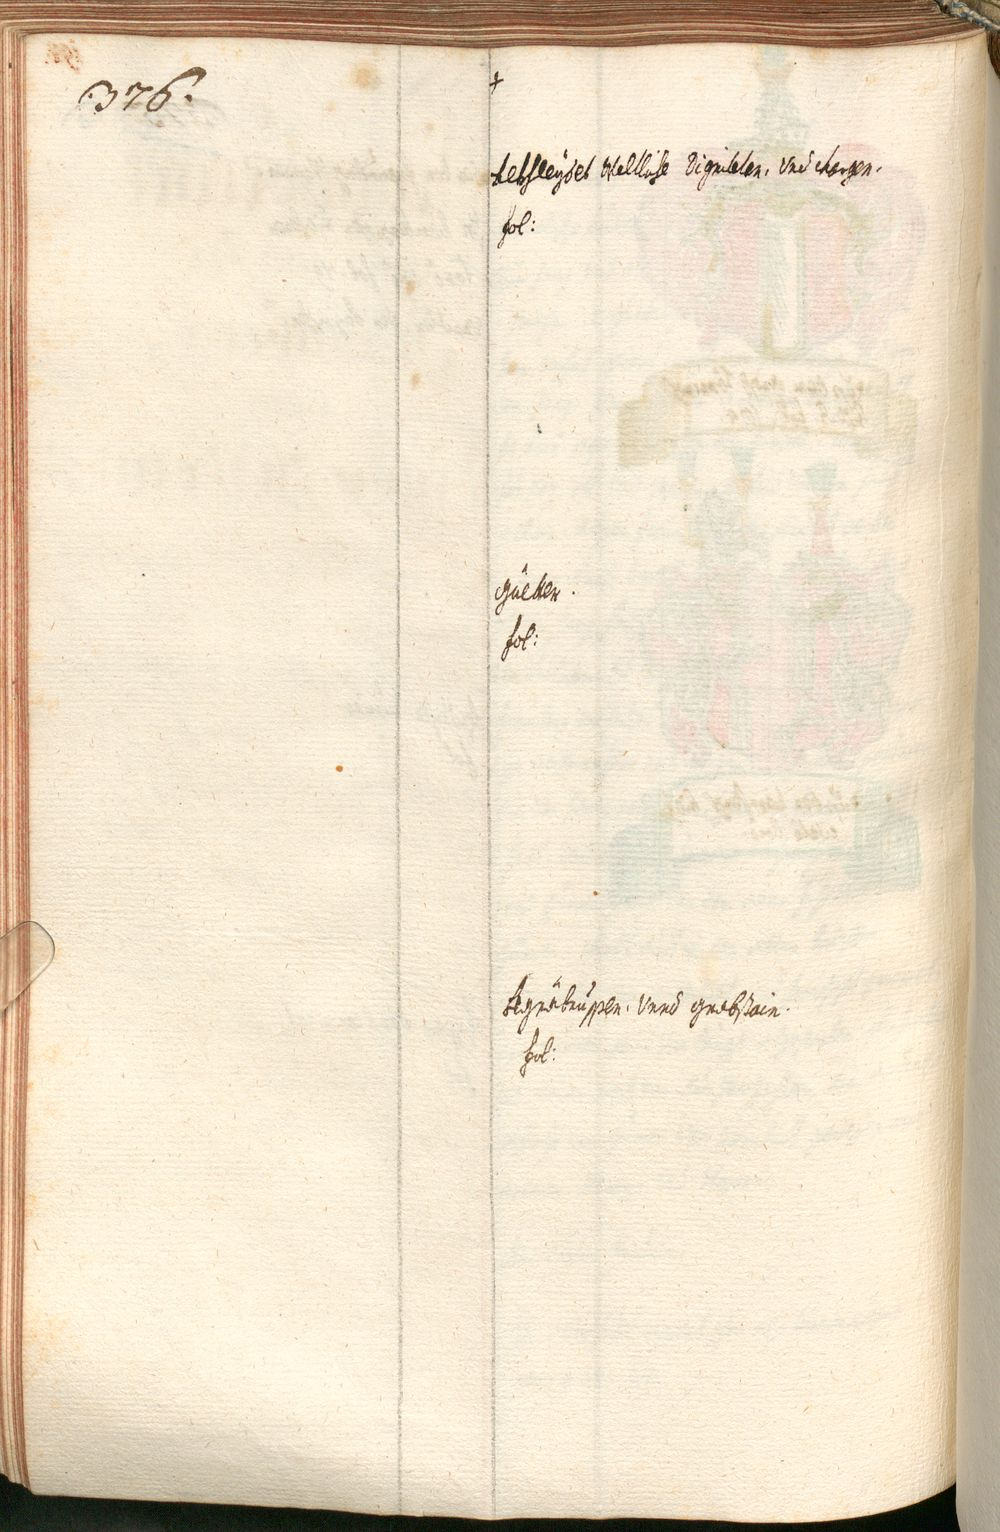 .376.
+
bekhleydet Weltliche Digniteten, Vnd chargen.
fol:
Güetter.
fol:
Begräbnussen, Vnnd grabstain.
fol: